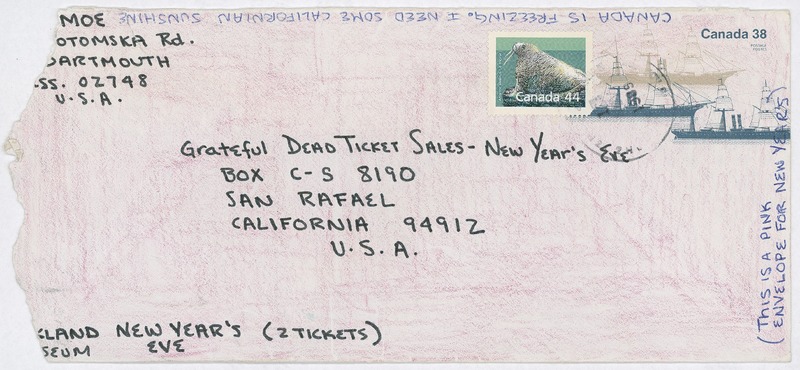 CANADA IS FREEZING. I NEED SOME CALIFORNIAN SUNSHINE
MOE
OTOMSKA Rd.
DARTMOUTH
SS. 02748
U.S.A.
Canada 44
Canada 38
POSTAGE
POSTES
Grateful DEAD TICKET SALES - NEW YEAR'S EVE
BOX C-S 8190
SAN RAFAEL
CALIFORNIA 94912
U.S.A.
(THIS IS A PINK
ENVELOPE FOR NEW YEAR'S)
ELAND NEW YEAR'S (2 TICKETS)
SEUM EVE